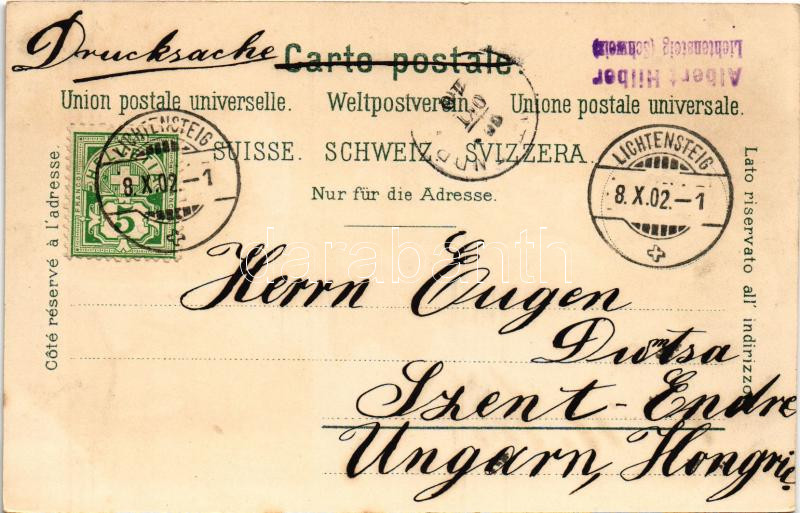 Drucksache Carte postale.
Albert Hilber
Lichtensteig (Schweiz)
Union postale universelle. Weltpostverein. Unione postale universale.
SUISSE. SCHWEIZ. SVIZZERA.
Nur für die Adresse.
Côté réservé à l'adresse.
Lato riservato all' indirizzo.
FRANCO
5
LICHTENSTEIG
8.X.02.-1
LICHTENSTEIG
8.X.02.-1
Herrn Eugen
Szent-Endre
Ungarn, Hongrie.
darabanth